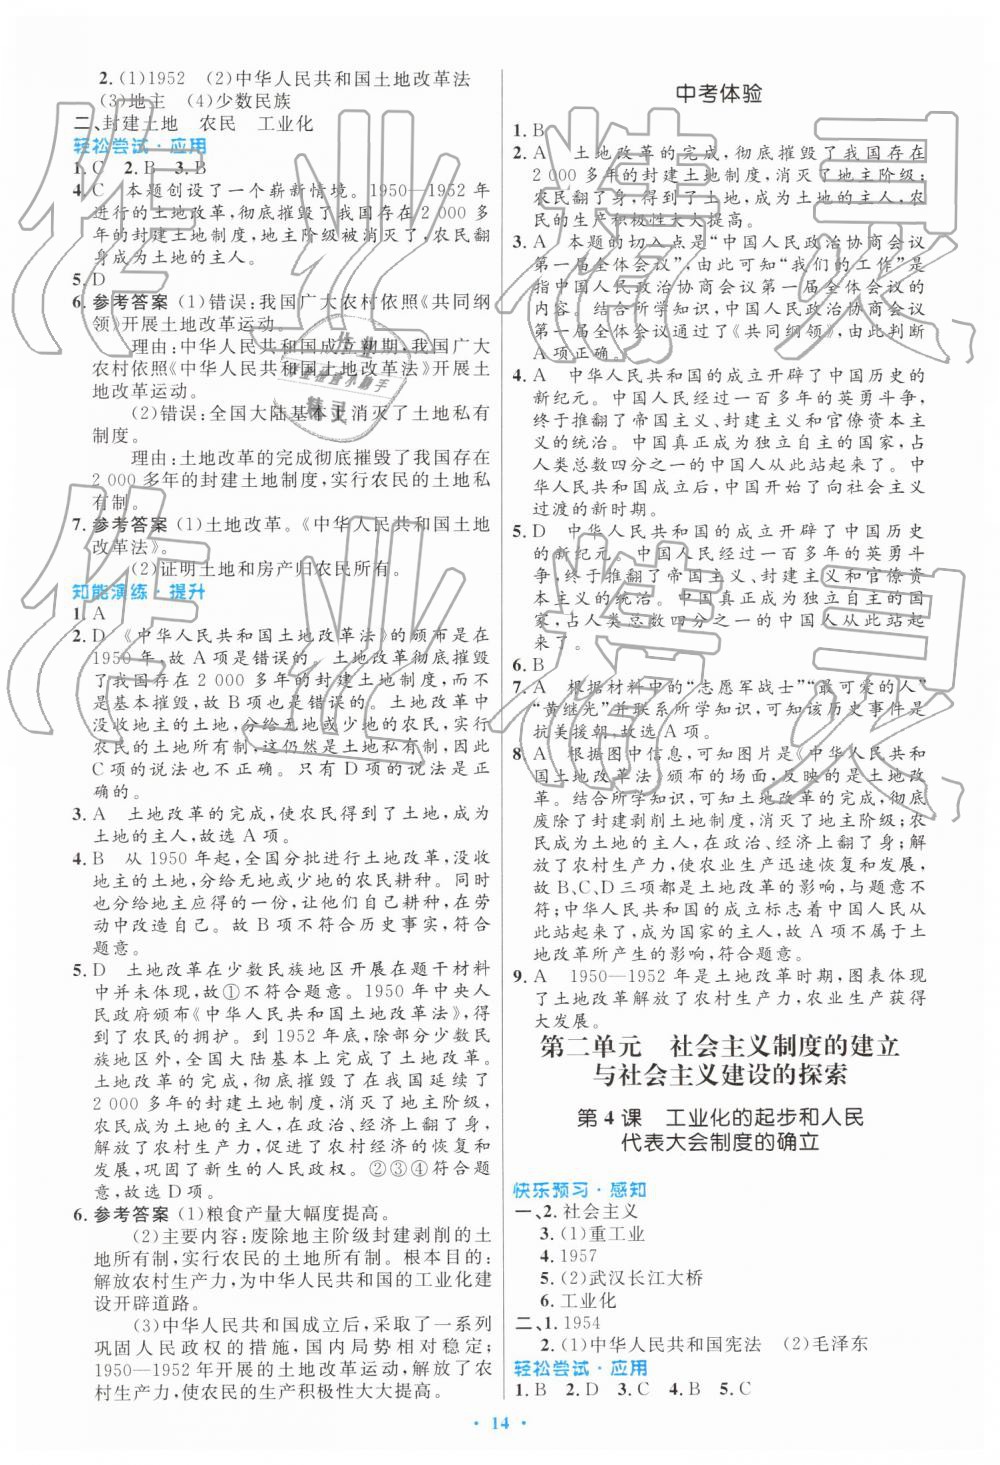 2.(1)1952　(2)中华人民共和国土地改革法
(3)地主　(4)少数民族
二、封建土地　农民　工业化
轻松尝试·应用
1. C　2. B　3. B
4. C　本题创设了一个崭新情境。1950—1952 年
进行的土地改革,彻底摧毁了我国存在 2 000 多
年的封建土地制度,地主阶级被消灭了,农民翻
身成为土地的主人。
5. D
6. 参考答案 (1)错误:我国广大农村依照《共同纲
领》开展土地改革运动。
理由:中华人民共和国成立初期,我国广大
农村依照《中华人民共和国土地改革法》开展土
地改革运动。
(2)错误:全国大陆基本上消灭了土地私有
制度。
理由:土地改革的完成彻底摧毁了我国存在
2 000 多年的封建土地制度,实行农民的土地私
有制。
7. 参考答案 (1)土地改革。《中华人民共和国土地
改革法》。
(2)证明土地和房产归农民所有。
知能演练·提升
1. A
2. D　《中华人民共和国土地改革法》的颁布是在
1950 年,故 A 项是错误的。土地改革彻底摧毁
了我国存在 2 000 多年的封建土地制度,而不
是基本摧毁,故 B 项也是错误的。土地改革中
没收地主的土地,分给无地或少地的农民,实行
农民的土地所有制,这仍然是土地私有制,因此
C 项的说法也不正确。只有 D 项的说法是正
确的。
3. A　土地改革的完成,使农民得到了土地,成为
土地的主人,故选 A 项。
4. B　从 1950 年起,全国分批进行土地改革,没收
地主的土地,分给无地或少地的农民耕种。同时
也分给地主应得的一份,让他们自己耕种,在劳
动中改造自己。故 B 项不符合历史事实,符合
题意。
5. D　土地改革在少数民族地区开展在题干材料
中并未体现,故①不符合题意。1950 年中央人
民政府颁布《中华人民共和国土地改革法》,得
到了农民的拥护。到 1952 年底,除部分少数民
族地区外,全国大陆基本上完成了土地改革。
土地改革的完成,彻底摧毁了在我国延续了
2 000 多年的封建土地制度,消灭了地主阶级;
农民得到了土地,在政治、经济上翻了身,成为
土地的主人,促进了农村经济的恢复和
发展,巩固了新生的人民政权。②③④符合题
意,故选 D 项。
6. 参考答案 (1)粮食产量大幅度提高。
(2)主要内容:废除地主阶级封建剥削的土
地所有制,实行农民的土地所有制。根本目的:
解放农村生产力,为中华人民共和国的工业化建
设开辟道路。
(3)中华人民共和国成立后,采取了一系列
巩固人民政权的措施,国内局势相对稳定;
1950—1952 年开展的土地改革运动,解放了农
村生产力,农民的生产积极性大大提高。
中考体验
1. B
2. A　土地改革的完成,彻底摧毁了我国存在
2 000 多年的封建土地制度,消灭了地主阶级;
农民翻了身,得到了土地,成为土地的主人,农
民的生产积极性大大提高。
3. A　本题的切入点是“中国人民政治协商会议
第一届全体会议”,由此可知“我们的工作”是
指中国人民政治协商会议第一届全体会议的内
容。结合所学知识,中国人民政治协商会议
第一届全体会议通过了《共同纲领》,由此判断
A 项正确。
4. A　中华人民共和国的成立开辟了中国历史的
新纪元。中国人民经过一百多年的英勇斗争,
终于推翻了帝国主义、封建主义和官僚资本主
义的统治。中国真正成为独立自主的国家,占
人类总数四分之一的中国人从此站起来了。中
华人民共和国成立后,中国开始了向社会主义
过渡的新时期。
5. D　中华人民共和国的成立开辟了中国历史
的新纪元。中国人民经过一百多年的英勇斗
争,终于推翻了帝国主义、封建主义和官僚资
本主义的统治。中国真正成为独立自主的国
家,占人类总数四分之一的中国人从此站起
来了。
6. B
7. A　根据材料中的“志愿军战士”“最可爱的人”
“黄继光”并联系所学知识,可知该历史事件是
抗美援朝,故选 A 项。
8. A　根据图中信息,可知图片是《中华人民共和
国土地改革法》颁布的场面,反映的是土地改
革。结合所学知识,可知土地改革的完成,彻底
废除了封建剥削土地制度,消灭了地主阶级;农
民成为土地的主人,在政治、经济上翻了身;解
放了农村生产力,使农业生产迅速恢复和发展,
故 B、C、D 三项都是土地改革的影响,与题意不
符;中华人民共和国的成立标志着中国人民从
此站起来了,成为国家的主人,故 A 项不属于土
地改革所产生的影响,符合题意。
9. A　1950—1952 年是土地改革时期,图表体现
了土地改革解放了农村生产力,农业生产获得
大发展。
第二单元　社会主义制度的建立
与社会主义建设的探索
第 4 课　工业化的起步和人民
代表大会制度的确立
快乐预习·感知
一、2. 社会主义
3. (1)重工业
4. 1957
5. (2)武汉长江大桥
6. 工业化
二、1. 1954
2. (1)中华人民共和国宪法　(2)毛泽东
轻松尝试·应用
1. B　2. D　3. C　4. B　5. C
· 14 ·